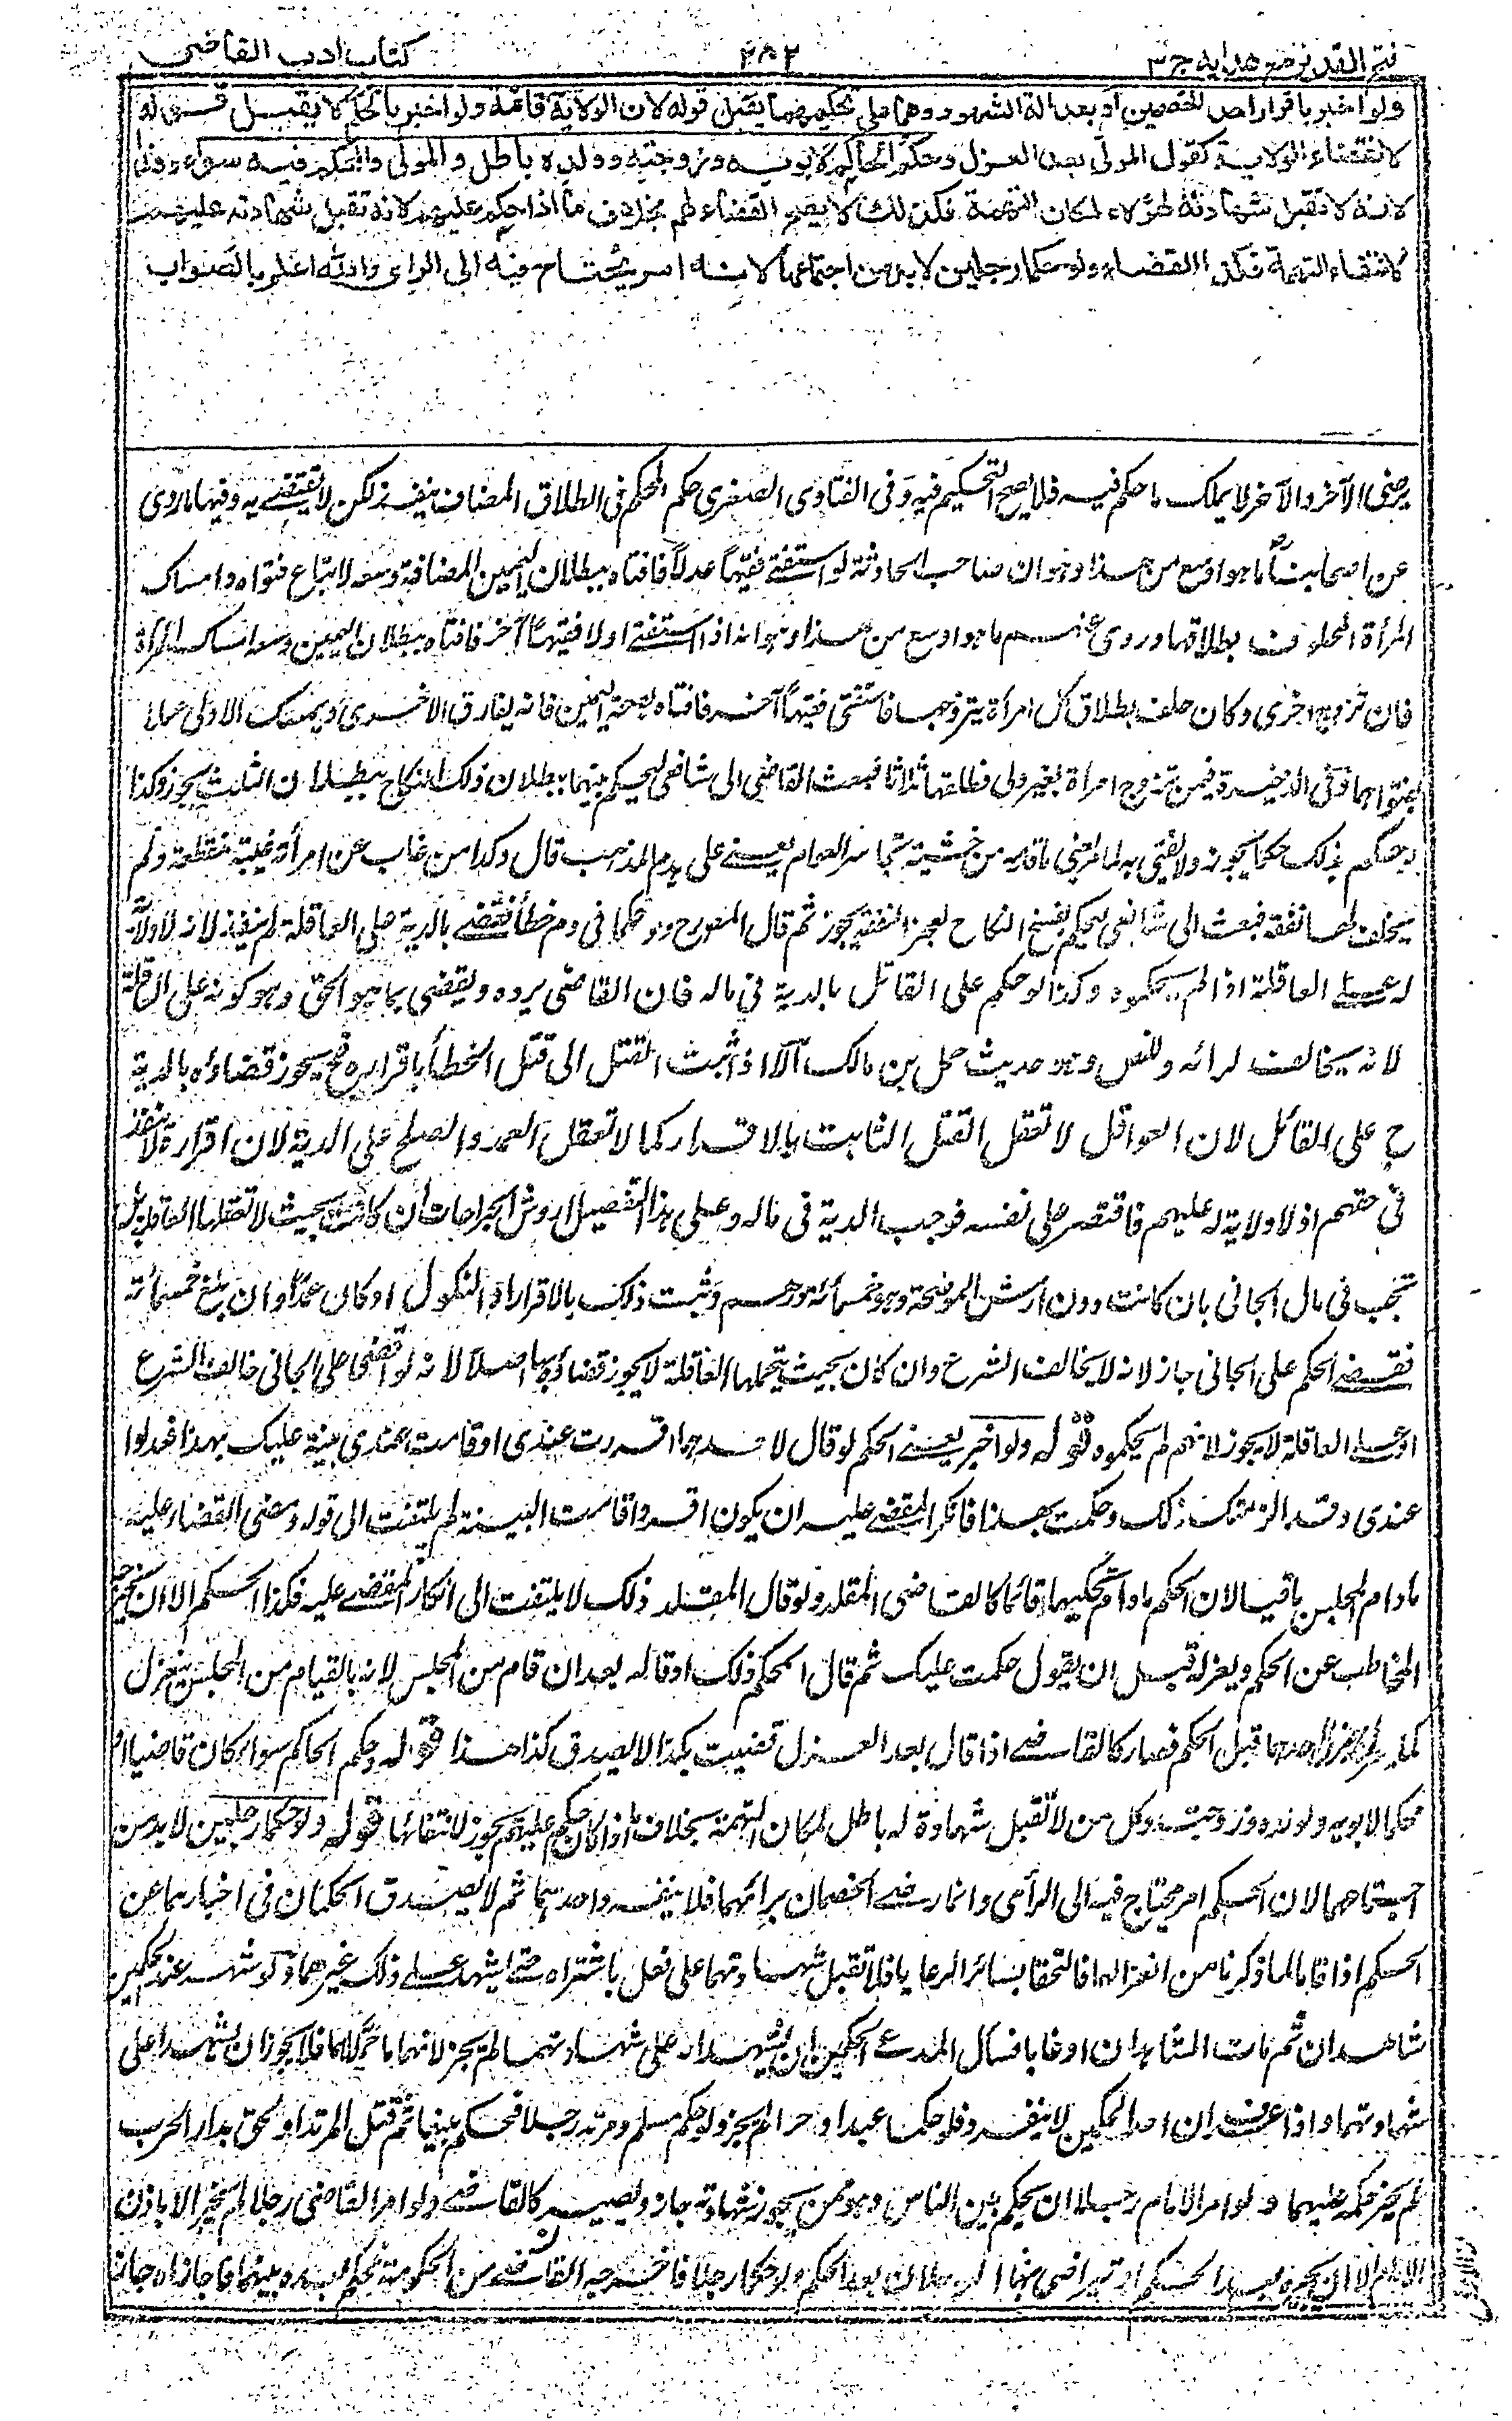 فتح القدیر مع هدایه ج ۳
۲۸۲
کتاب ادب القاضی
ولو اخبر باقرار احد الخصمین او بعدالة الشهود وهما علی تحکیمهما یقبل قوله لان الولایة قائمة ولو اخبر بالحکم لا یقبل قوله
لانقضاء الولایة کقول المولی بعد العزل وحکم الحاکم لابویه وزوجته وولده باطل والمولی والمحکم فیه سواء وهذا
لانه لا تقبل شهادته لهؤلاء لمکان التهمة فکذلک لا یصح القضاء لهم بخلاف ما اذا حکم علیهم لانه تقبل شهادته علیهم
لانتفاء التهمة فکذا القضاء ولو حکما رجلین لا بد من اجتماعهما لانه امر یحتاج فیه الی الرای والله اعلم بالصواب
یرضی الآخر والآخر لا یملک ما حکم فیه فلا یصح التحکیم فیه وفی الفتاوی الصغری حکم المحکم فی الطلاق المضاف ینفذ لکن لا یفتی به وفیها ما روی
عن اصحابنا ما هو اوسع من هذا وهو ان صاحب الحادثة لو استفتی فقیها عدلا فافتاه ببطلان الیمین المضافة وسعه اتباع فتواه وامساک
المرأة المحلوف بطلاقها وروی عنهم ما هو اوسع من هذا وهو انه اذا استفتی اولا فقیها آخر فافتاه ببطلان الیمین وسعه امساک المرأة
فان تزوج اخری وکان حلف بطلاق کل امرأة یتزوجها فاستفتی فقیها آخر فافتاه بصحة الیمین فانه یفارق الاخری ویمسک الاولی عملا
بفتواهما وفی الذخیرة فیمن تزوج امرأة بغیر ولی فطلقها ثلاثا فبعث القاضی الی شافعی لیحکم بینهما ببطلان ذلک النکاح ببطلان الثلث یجوز وکذا
لو حکم بذلک حکما یجوز ولا یفتی به لما قدمه من خشیة تجاسر العوام یعنی علی هدم المذهب قال وکذا من غاب عن امرأته غیبة منقطعة ولم
یخلف لها نفقة فبعث الی شافعی لیحکم بفسخ النکاح لعجز النفقة یجوز ثم قال المصنف ولو حکما فی دم خطأ فقضی بالدیة علی العاقلة لم ینفذ لانه لا ولایة
له علی العاقلة اذا لم یحکموه وکذا لو حکم علی القاتل بالدیة فی ماله فان القاضی یرده ویقضی بما هو الحق وهو کونه علی العاقلة
لانه یخالف لرائه وللنص وهو حدیث حمل بن مالک الا اذا ثبت القتل الی قتل الخطأ باقراره فح یجوز قضاؤه بالدیة
ح علی القاتل لان العواقل لا تعقل القتل الثابت بالاقرار کما لا تعقل العمد والصلح علی الدیة لان اقراره لا ینفذ
فی حقهم اذ لا ولایة له علیهم فاقتصر علی نفسه فوجب الدیة فی ماله وعلی هذا التفصیل اروش الجراحات ان کانت بحیث لا تعقلها العاقلة بل
تجب فی مال الجانی بان کانت دون ارش الموضحة وهو خمسمائة درهم وثبت ذلک بالاقرار او النکول او کان عمدا وان بلغ خمسمائة
فقضی الحکم علی الجانی جاز لانه لا یخالف الشرع وان کان بحیث یتحملها العاقلة لا یجوز قضاؤه بها اصلا لانه لو قضی علی الجانی خالف الشرع
او علی العاقلة لا یجوز لانهم لم یحکموه قوله ولو اخبر یعنی الحکم لو قال لاحدهما اقررت عندی او قامت عندی بینة علیک بهذا فعدلوا
عندی وقد الزمتک ذلک وحکمت بهذا فانکر المقضی علیه ان یکون اقر او قامت البینة لم یلتفت الی قوله ومضی القضاء علیه
ما دام المجلس باقیا لان الحکم ما دام تحکیمهما قائما کالقاضی المقلد ولو قال المقلد ذلک لا یلتفت الی انکار المقضی علیه فکذا الحکم الا ان یخرجه
المخاطب عن الحکم ویعزله قبل ان یقول حکمت علیک ثم قال المحکم ذلک او قاله بعد ان قام من المجلس لانه بالقیام من المجلس ینعزل
کما بعزل احدهما قبل الحکم فصار کالقاضی اذا قال بعد العزل قضیت بکذا لا یصدق کذا هذا قوله وحکم الحاکم سواء کان قاضیا او
محکما لابویه وولده وزوجته وکل من لا تقبل شهادة له باطل لمکان التهمة بخلاف ما اذا کان حکم علیهم یجوز لانتفائها قوله ولو حکما رجلین لا بد من
اجتماعهما لان الحکم امر یحتاج فیه الی الرأی وانما رضی الخصمان برائهما فلا ینفذ واحد منهما ثم لا یصدق الحکمان فی اخبارهما عن
الحکم اذا قاما لما ذکرنا من انعزالهما فالتحقا بسائر الرعایا فلا تقبل شهادتهما علی فعل باشتراه حتی یشهد علی ذلک غیرهما ولو شهد عند حکمین
شاهدان ثم مات الشاهدان او غابا فسال المدعی الحکمین ان یشهدا له علی شهادتهما لم یجز لانهما ما حملاهما فلا یجوز ان یشهدا علی
شهادتهما واذا عرفت ان احد المحکمین لا ینفرد فلو حکما عبدا وحرا لم یجز ولو حکم مسلم ومرتد رجلا فحکم بینهما ثم قتل المرتد او لحق بدار الحرب
لم یجز حکمه علیهما ولو امر الامام رجلا ان یحکم بین الناس وهو ممن یجوز شهادته جاز ویصیر کالقاضی ولو امر القاضی رجلا لم یجز الا باذن
الامام الا ان یجیزه بعد الحکم او تیراضی علیه الرجلان بعد الحکم ولو حکما رجلا فاخرجه القاضی من الحکومة فحکم بعده بینهما فاجازاه جاز